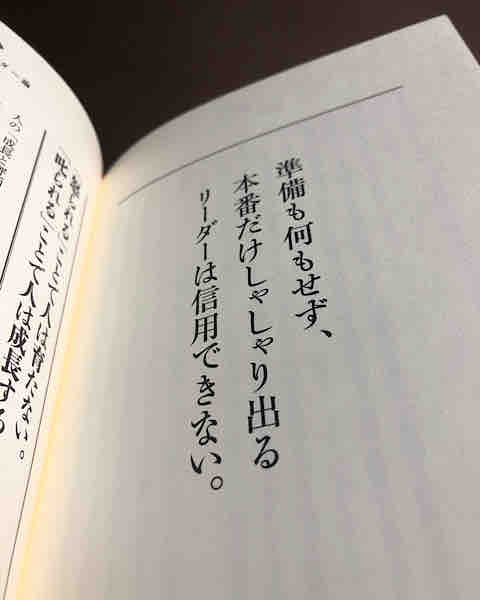 準備も何もせず、
本番だけしゃしゃり出る
リーダーは信用できない。
ことで人は育たない。
「叱られる」ことで人は成長する